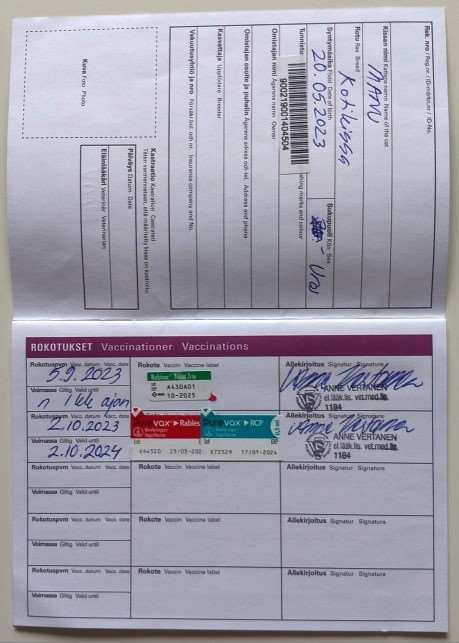 Rek. nro / Reg.nr. / ID-märket.nr / ID-No.
Kissan nimi Kattens namn Name of the cat
MANU
Rotu Ras Breed
Kotikissa
Syntymäaika Född Date of birth
20.05.2023
Sukupuoli Kön Sex
Uros
Tunnisto
900219001404504
Omistajan nimi Ägarens namn Owner
Omistajan osoite ja puhelin Ägarens adress och tel. Address and phone
Kasvattaja Uppfödare Breeder
Vakuutusyhtiö ja nro Försäkr.bol. och nr. Insurance company and No.
Kuva Foto Photo
Kastraatio Kastration Castrated
Päiväys Datum Date
Eläinlääkäri Veterinär Veterinarian
ROKOTUKSET Vaccinationer Vaccinations
Rokotuspvm Vacc. datum Vacc. date
5.9.2023
Rokote Vaccin Vaccine label
Nobivac Tricat Trio
A430A01
10-2025
Allekirjoitus Signatur Signature
ANNE VERTANEN
el.lääk.lis. vet.med.lis.
1184
Voimassa Giltig Valid until
n 1 kk ajan
Rokotuspvm Vacc. datum Vacc. date
2.10.2023
VAX Rables
VAX RCP
Allekirjoitus Signatur Signature
ANNE VERTANEN
el.lääk.lis. vet.med.lis.
1184
Voimassa Giltig Valid until
2.10.2024
Rokotuspvm Vacc. datum Vacc. date
Rokote Vaccin Vaccine label
Allekirjoitus Signatur Signature
Voimassa Giltig Valid until
Rokotuspvm Vacc. datum Vacc. date
Rokote Vaccin Vaccine label
Allekirjoitus Signatur Signature
Voimassa Giltig Valid until
Rokotuspvm Vacc. datum Vacc. date
Rokote Vaccin Vaccine label
Allekirjoitus Signatur Signature
Voimassa Giltig Valid until